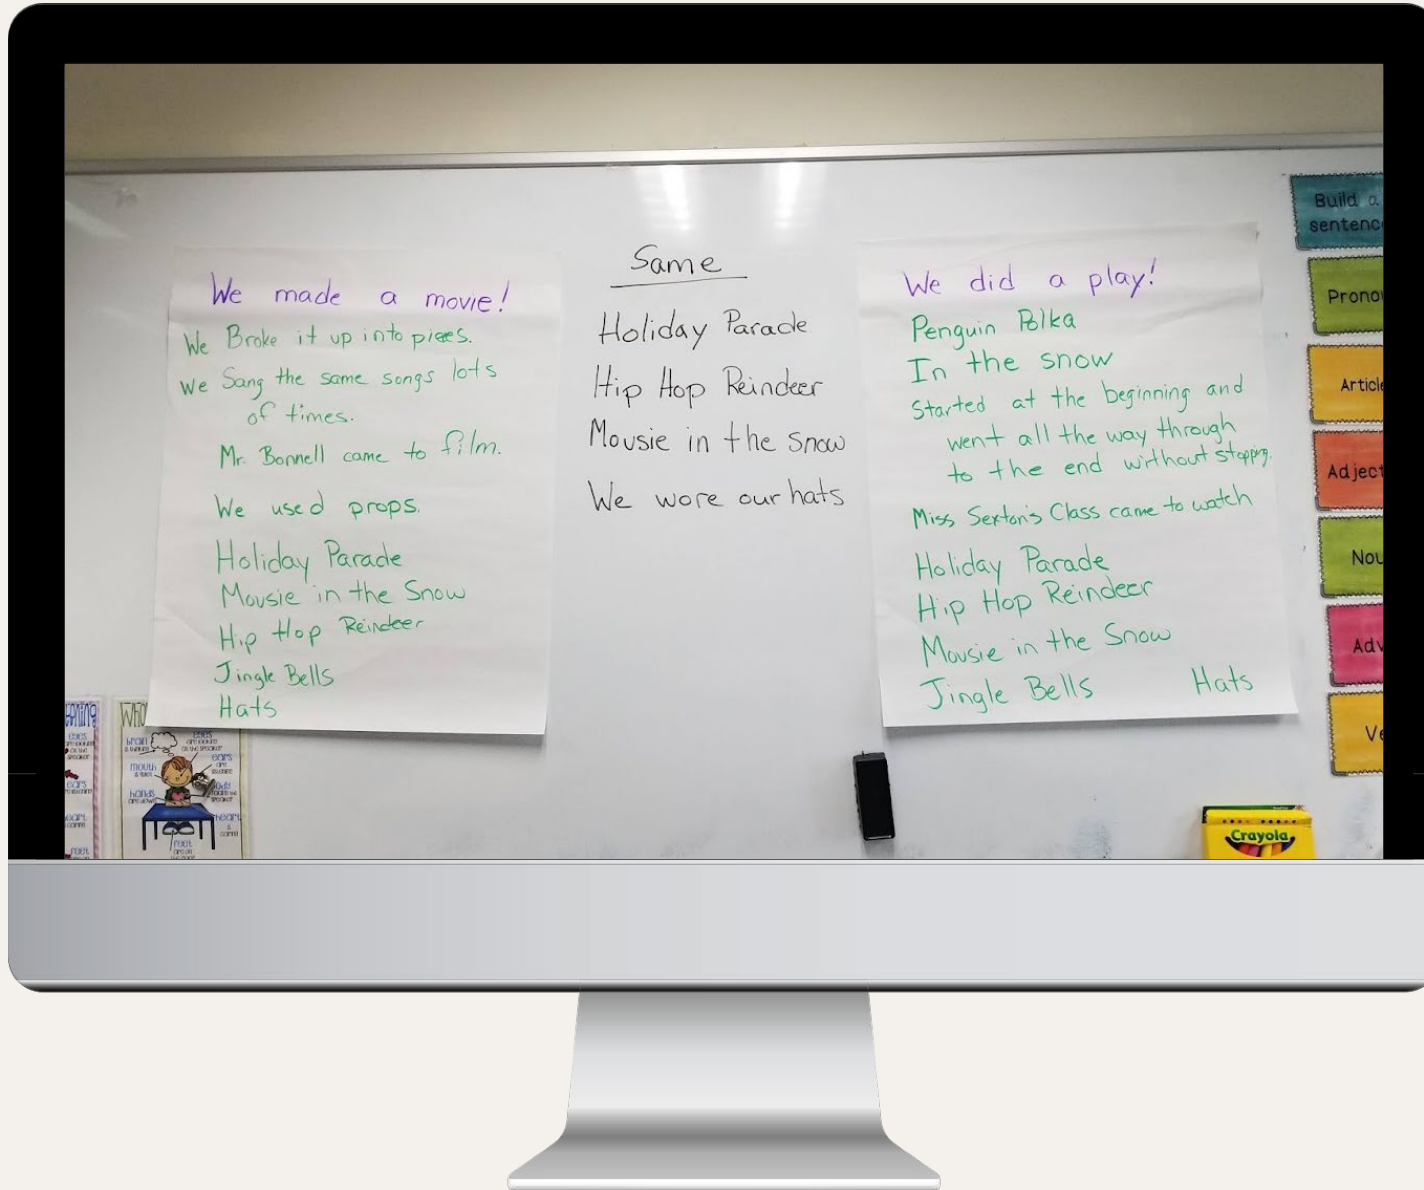 We made a movie!
We Broke it up into pieces.
We Sang the same songs lots
of times.
Mr. Bonnell came to film.
We used props.
Holiday Parade
Mousie in the Snow
Hip Hop Reindeer
Jingle Bells
Hats
Same
Holiday Parade
Hip Hop Reindeer
Mousie in the snow
We wore our hats
We did a play!
Penguin Polka
In the snow
Started at the beginning and
went all the way through
to the end without stopping.
Miss Sexton's Class came to watch
Holiday Parade
Hip Hop Reindeer
Mousie in the Snow
Jingle Bells Hats
Build a
sentenc
Prono
Article
Adject
Nou
Adv
Ve
brain
eyes
mouth
ears
hands
heart
feet
Crayola